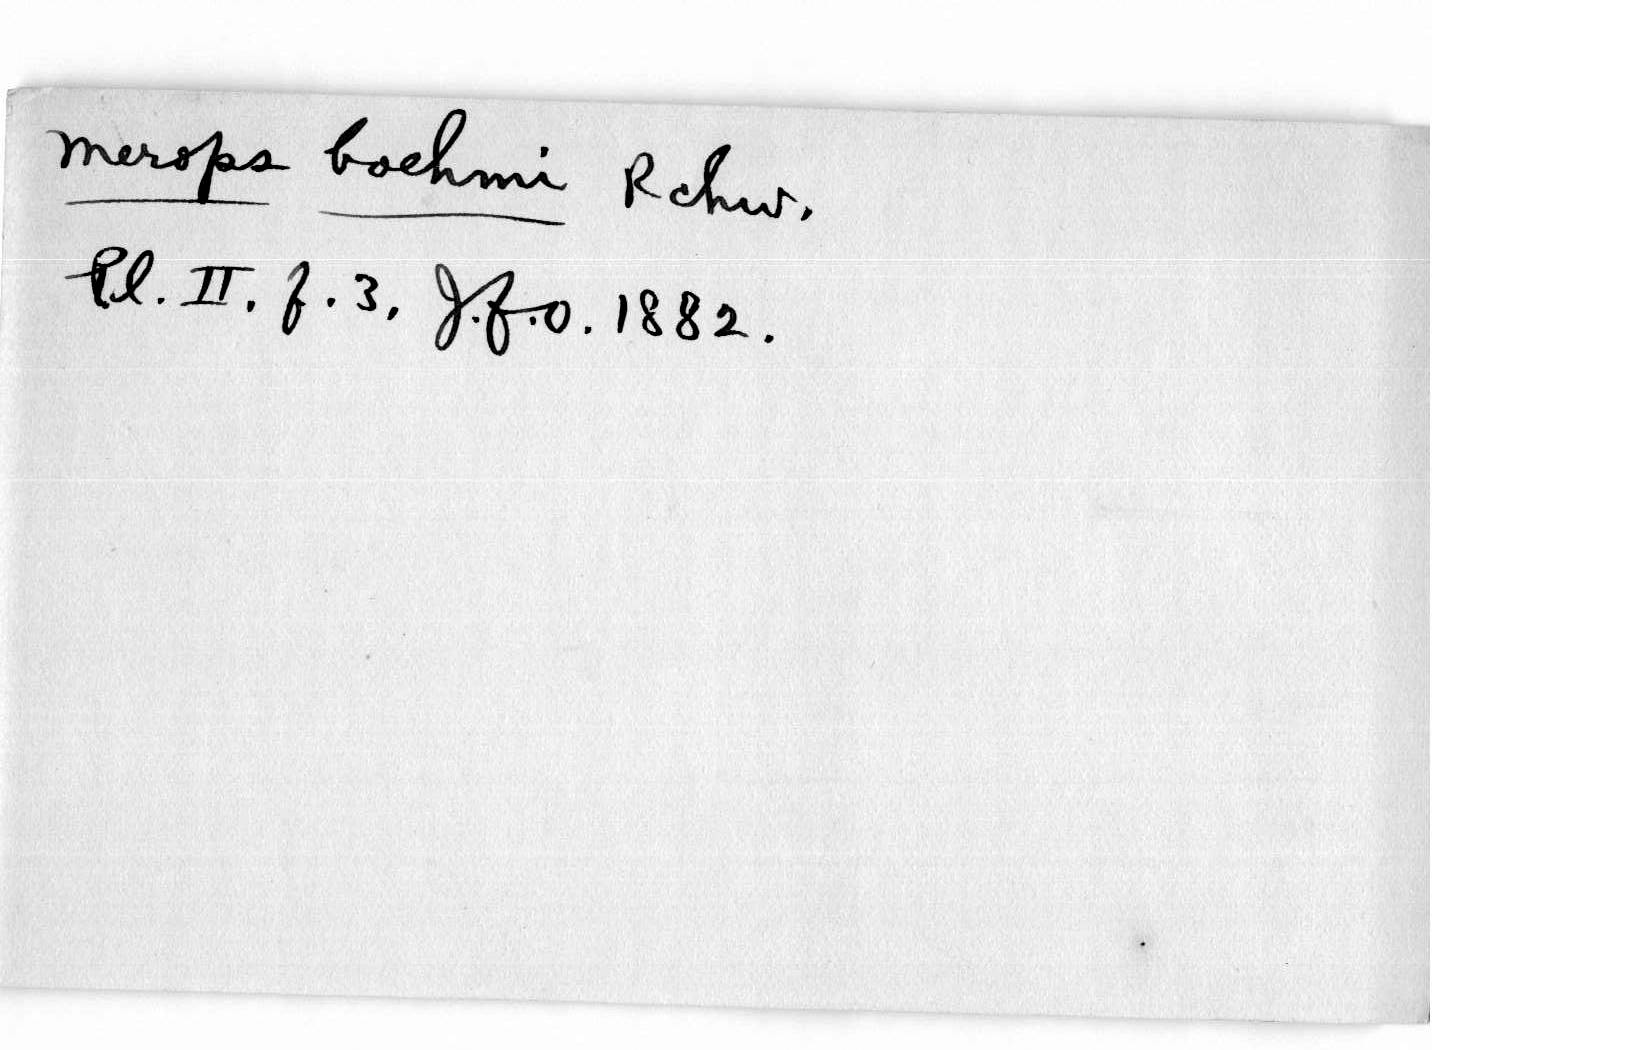 Merops boehmi Rchw.
Pl. II. f. 3, J.f.O. 1882.